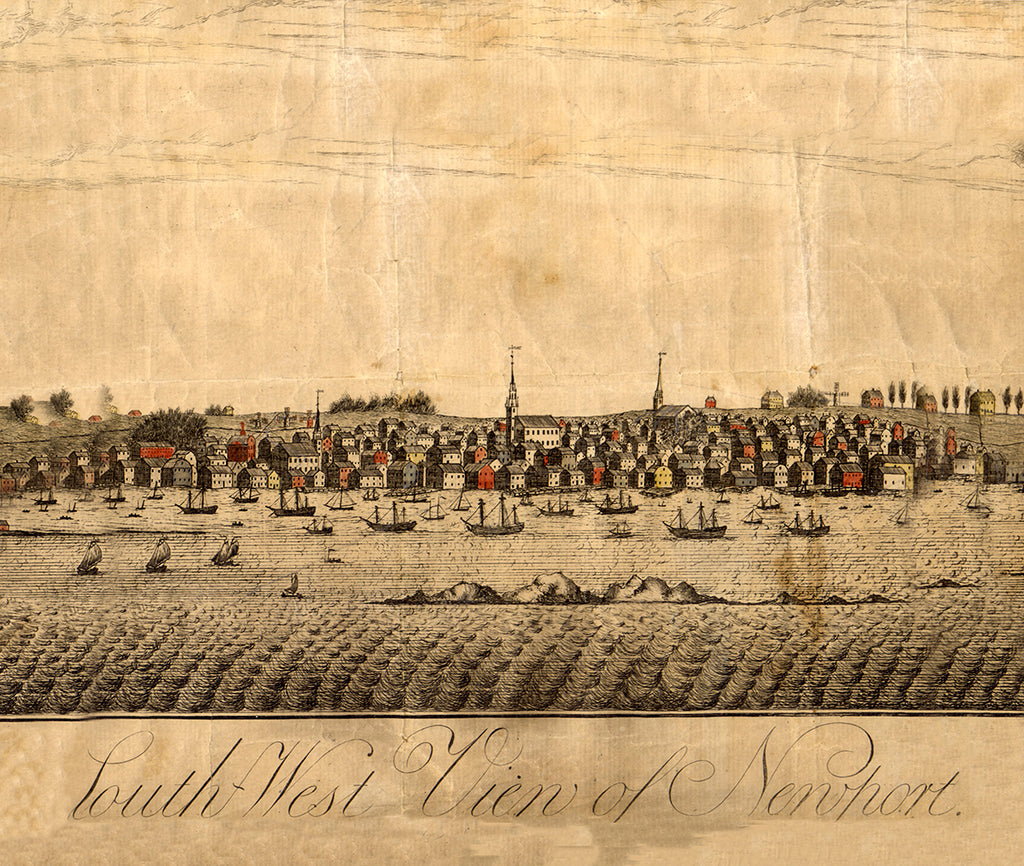 South-West View of Newport.